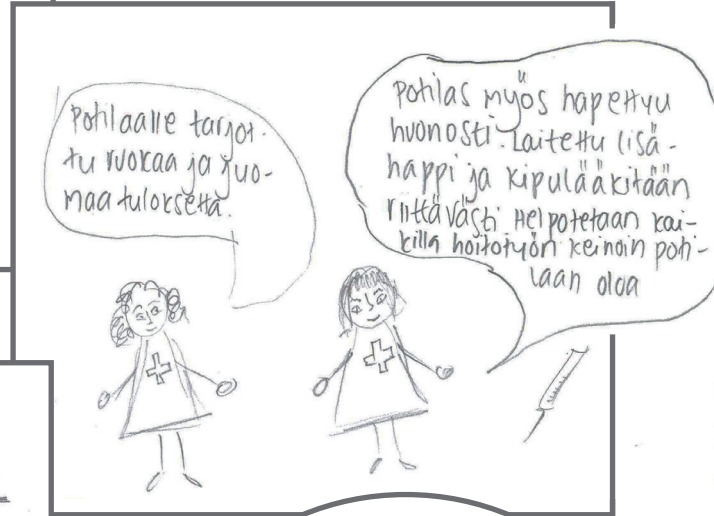 Potilaalle tarjot-
tu ruokaa ja juo-
maa tuloksetta.
Potilas myös hapettuu
huonosti. Laitettu lisä-
happi ja kipulääkitään
riittävästi Helpotetaan kai-
killa hoitotyön keinoin poti-
laan oloa